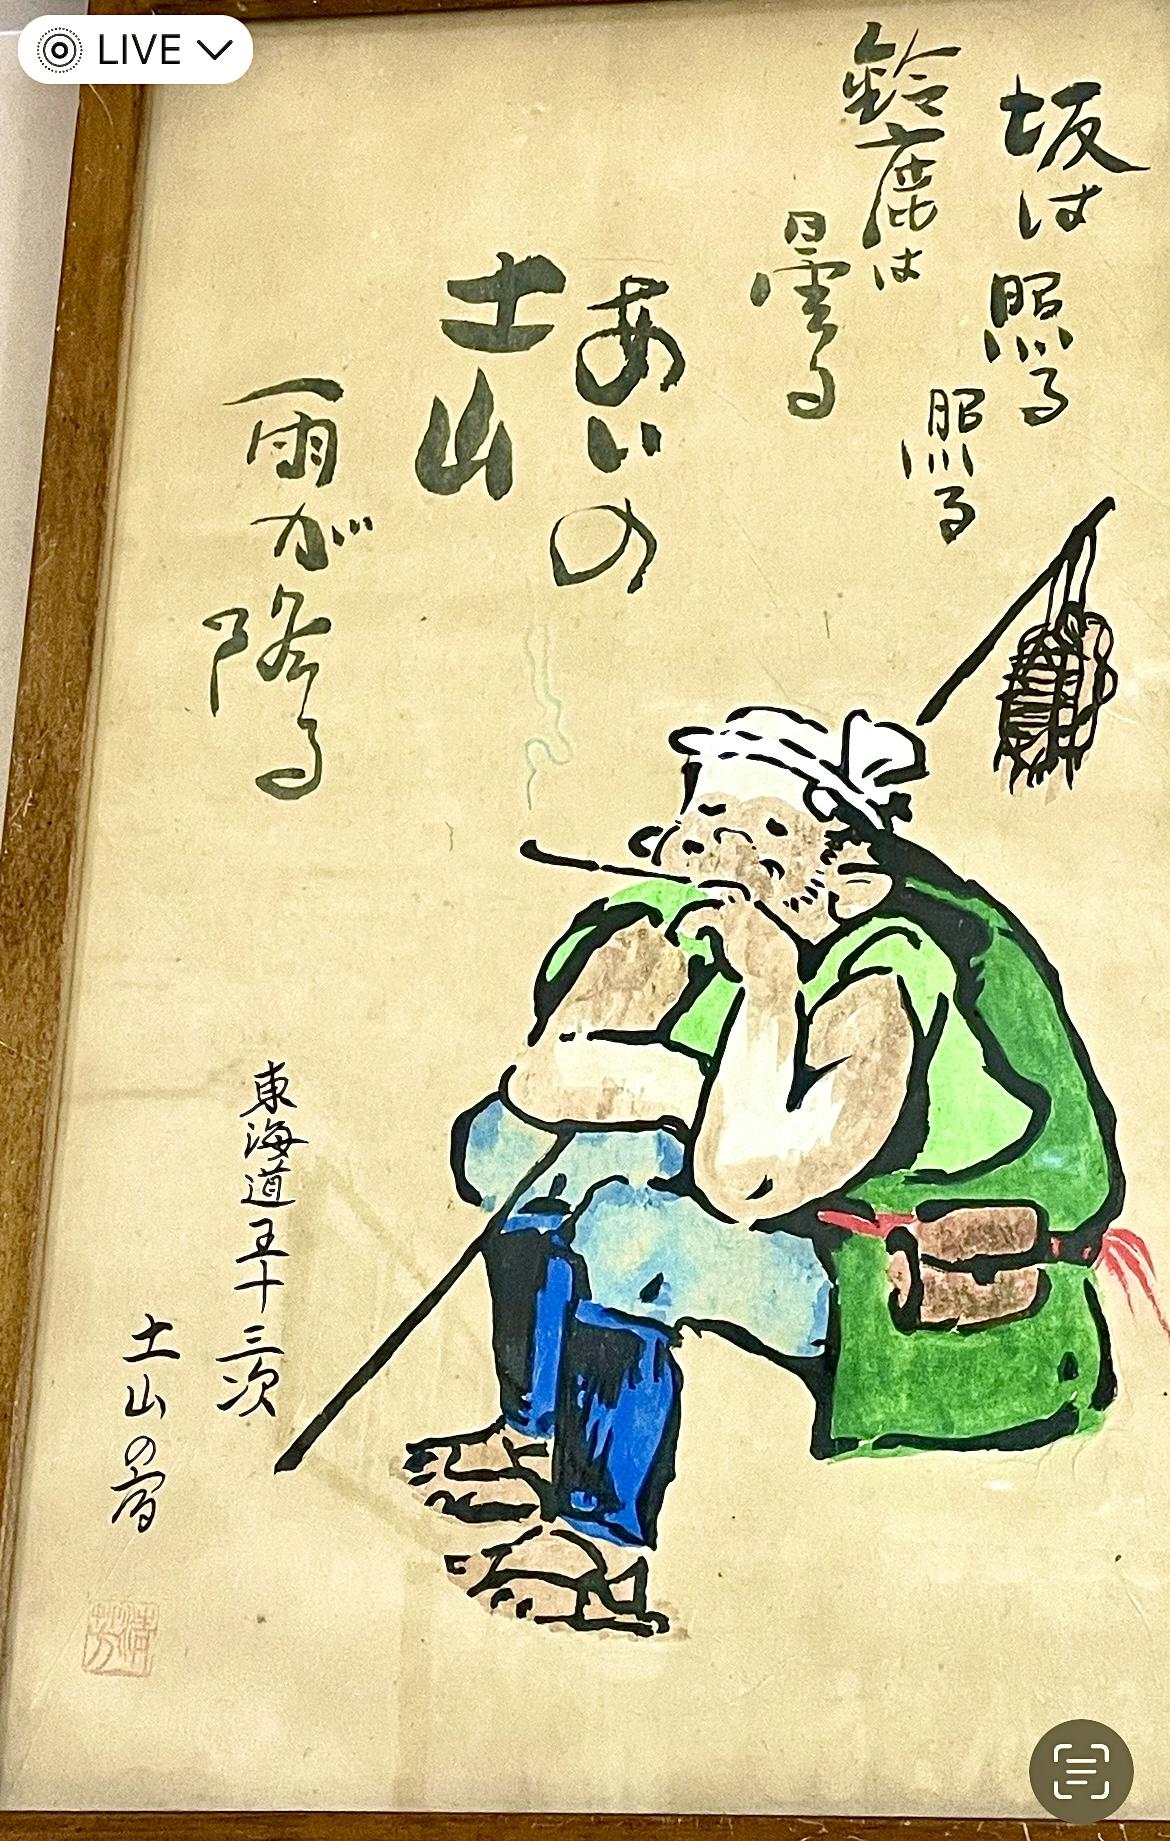 LIVE
坂は照る
照る
鈴鹿は
曇る
あいの
土山
雨が降る
東海道五十三次
土山の宿